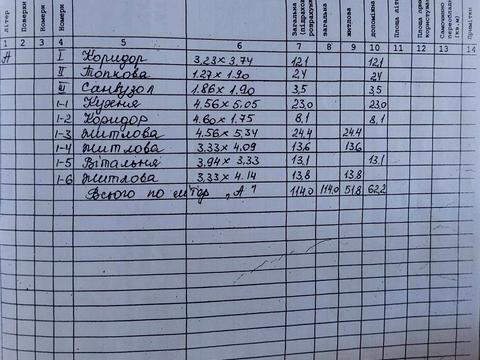 Літер
Поверхи
Номери
Номери
Загальна
загальна
житлова
допоміжна
Площа літн
Площа при
користува
Самочинно
переобла
(кв.м)
Примітки
1 2 3 4 5 6 7 8 9 10 11 12 13 14
А І Коридор 3.23 x 3.74 12,1 12,1
ІІ Топкова 1.27 x 1.90 2,4 2,4
ІІІ Санвузол 1.86 x 1.90 3,5 3,5
1-1 Кухня 4.56 x 5.05 23,0 23,0
1-2 Коридор 4.60 x 1.75 8,1 8,1
1-3 житлова 4.56 x 5,34 24,4 24.4
1-4 житлова 3.33 x 4.09 13,6 13,6
1-5 Вітальня 3.94 x 3.33 13,1 13,1
1-6 житлова 3.33 x 4.14 13,8 13,8
Всього по літер „А" 114.0 114,0 51,8 62,2